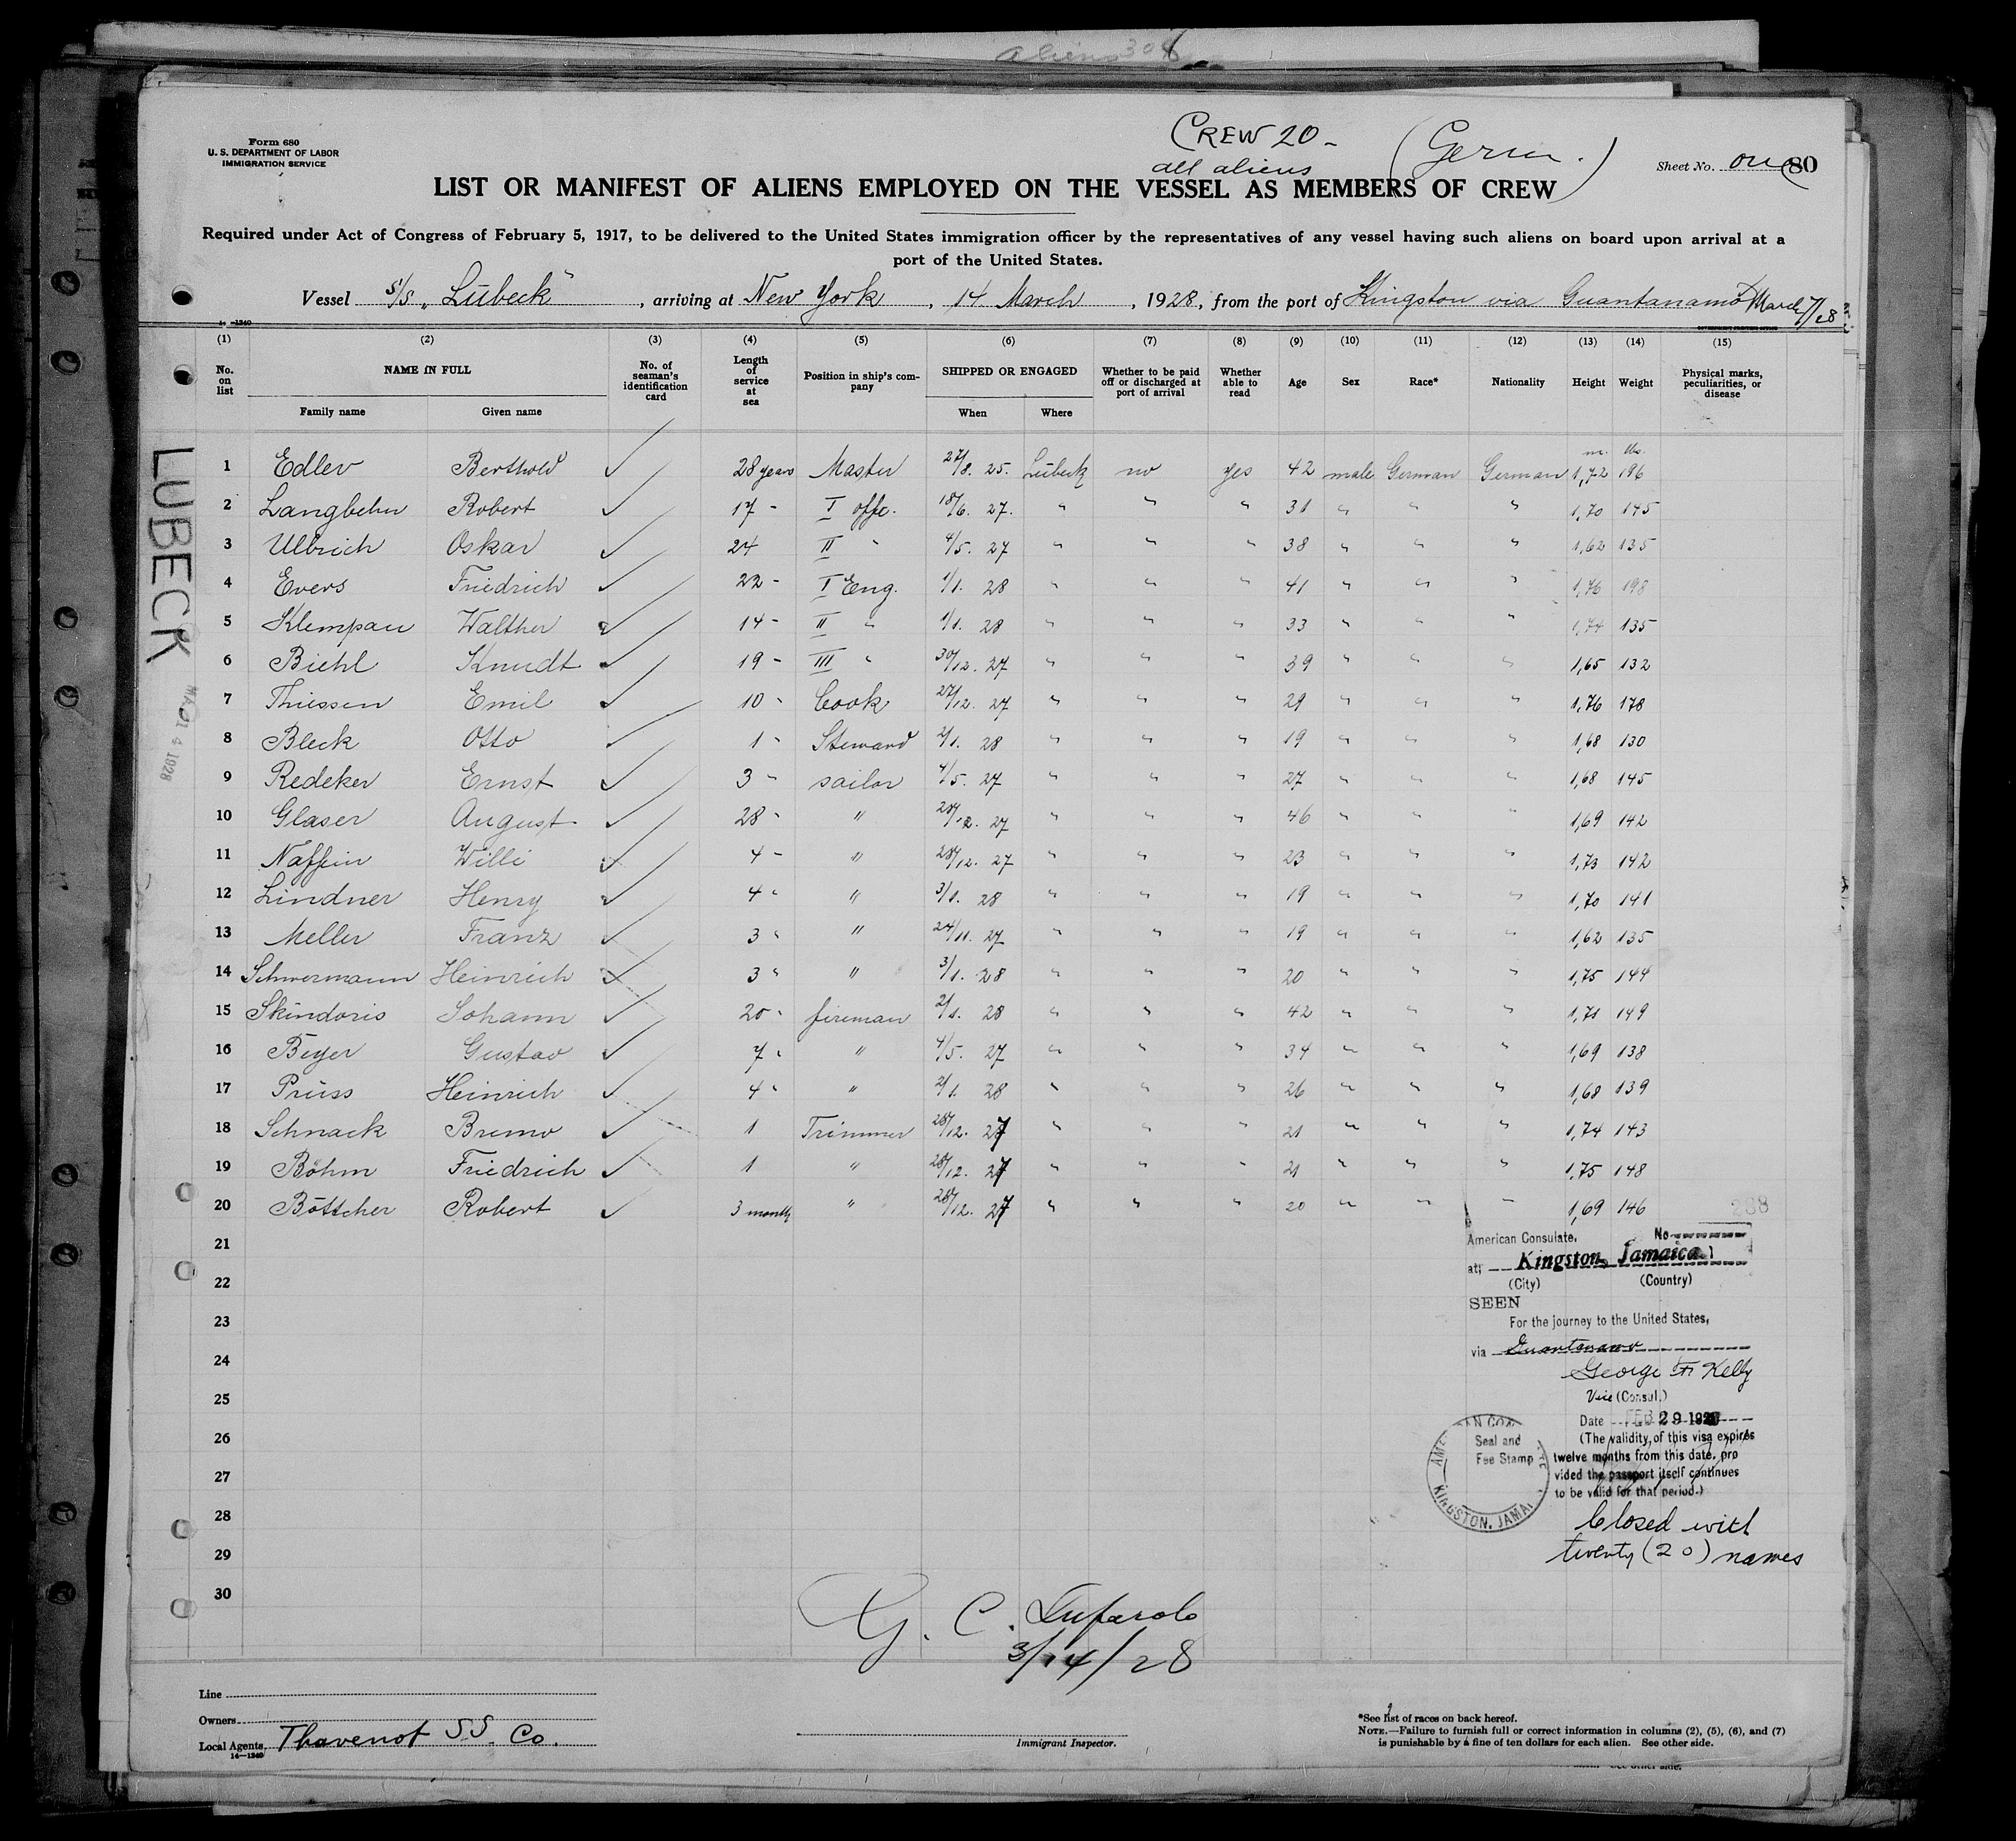 aliens
CREW 20 - (Germ.)
all aliens
Form 680
U. S. DEPARTMENT OF LABOR
IMMIGRATION SERVICE
Sheet No. one 80
LIST OR MANIFEST OF ALIENS EMPLOYED ON THE VESSEL AS MEMBERS OF CREW
Required under Act of Congress of February 5, 1917, to be delivered to the United States immigration officer by the representatives of any vessel having such aliens on board upon arrival at a
port of the United States.
Vessel S/S „Lübeck", arriving at New York, 14 March, 1928, from the port of Kingston via Guantanamo March 7/28
14-1240
(1) (2) (3) (4) (5) (6) (7) (8) (9) (10) (11) (12) (13) (14) (15)
No. on list NAME IN FULL No. of seaman's identification card Length of service at sea Position in ship's company SHIPPED OR ENGAGED Whether to be paid off or discharged at port of arrival Whether able to read Age Sex Race* Nationality Height Weight Physical marks, peculiarities, or disease
Family name Given name When Where
m. lbs.
1 Edler Berthold ✓ 28 years Master 27/8. 25. Lübeck no yes 42 male German German 1,72 196
2 Langbehn Robert ✓ 17 - I offc. 18/6. 27. " " " 31 " " " 1,70 145
3 Ulbrich Oskar ✓ 24 II " 4/5. 27 " " " 38 " " " 1,62 135
4 Evers Friedrich ✓ 22 - I Eng. 1/1. 28 " " " 41 " " " 1,76 198
5 Klempau Walther ✓ 14 - II " 1/1. 28 " " " 33 " " " 1,74 135
6 Biehl Knudt ✓ 19 - III " 30/12. 27 " " " 39 " " " 1,65 132
7 Thiessen Emil ✓ 10 " Cook 27/12. 27 " " " 29 " " " 1,76 178
8 Bleck Otto ✓ 1 " Steward 2/1. 28 " " " 19 " " " 1,68 130
9 Redeker Ernst ✓ 3 " sailor 4/5. 27 " " " 27 " " " 1,68 145
10 Glaser August ✓ 28 " " 28/12. 27 " " " 46 " " " 1,69 142
11 Naffin Willi ✓ 4 - " 28/12. 27 " " " 23 " " " 1,73 142
12 Lindner Henry ✓ 4 " " 3/1. 28 " " " 19 " " " 1,70 141
13 Meller Franz ✓ 3 " " 24/11. 27 " " " 19 " " " 1,62 135
14 Schwermann Heinrich ✓ 3 " " 3/1. 28 " " " 20 " " " 1,75 144
15 Skindoris Johann ✓ 20 " fireman 2/1. 28 " " " 42 " " " 1,71 149
16 Beyer Gustav ✓ 7 " " 4/5. 27 " " " 34 " " " 1,69 138
17 Prüss Heinrich ✓ 4 " " 2/1. 28 " " " 26 " " " 1,68 139
18 Schnack Bruno ✓ 1 Trimmer 28/12. 27 " " " 21 " " " 1,74 143
19 Böhm Friedrich ✓ 1 " 28/12. 27 " " " 21 " " " 1,75 148
20 Böttcher Robert ✓ 3 month " 28/12. 27 " " " 20 " " " 1,69 146
21
22
23
24
25
26
27
28
29
30
LUBECK
MAR 14 1928
288
American Consulate, No
at; Kingston, Jamaica
(City) (Country)
SEEN
For the journey to the United States,
via Guantanamo
George F. Kelly
Vice (Consul.)
Date FEB 29 1928
(The validity of this visa expires
twelve months from this date, pro
vided the passport itself continues
to be valid for that period.)
Seal and
Fee Stamp
KINGSTON, JAMA
Closed with
twenty (20) names
3/14/28
Line
Owners
Local Agents. Thavenot S.S. Co.
14-1240
Immigrant Inspector.
*See list of races on back hereof.
NOTE.—Failure to furnish full or correct information in columns (2), (5), (6), and (7)
is punishable by a fine of ten dollars for each alien. See other side.